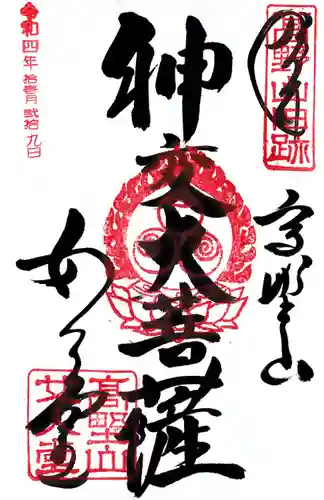 高野山旧跡
高野山
神変大菩薩
女人堂
高野山
女人堂
令和四年 拾壱月 弐拾九日